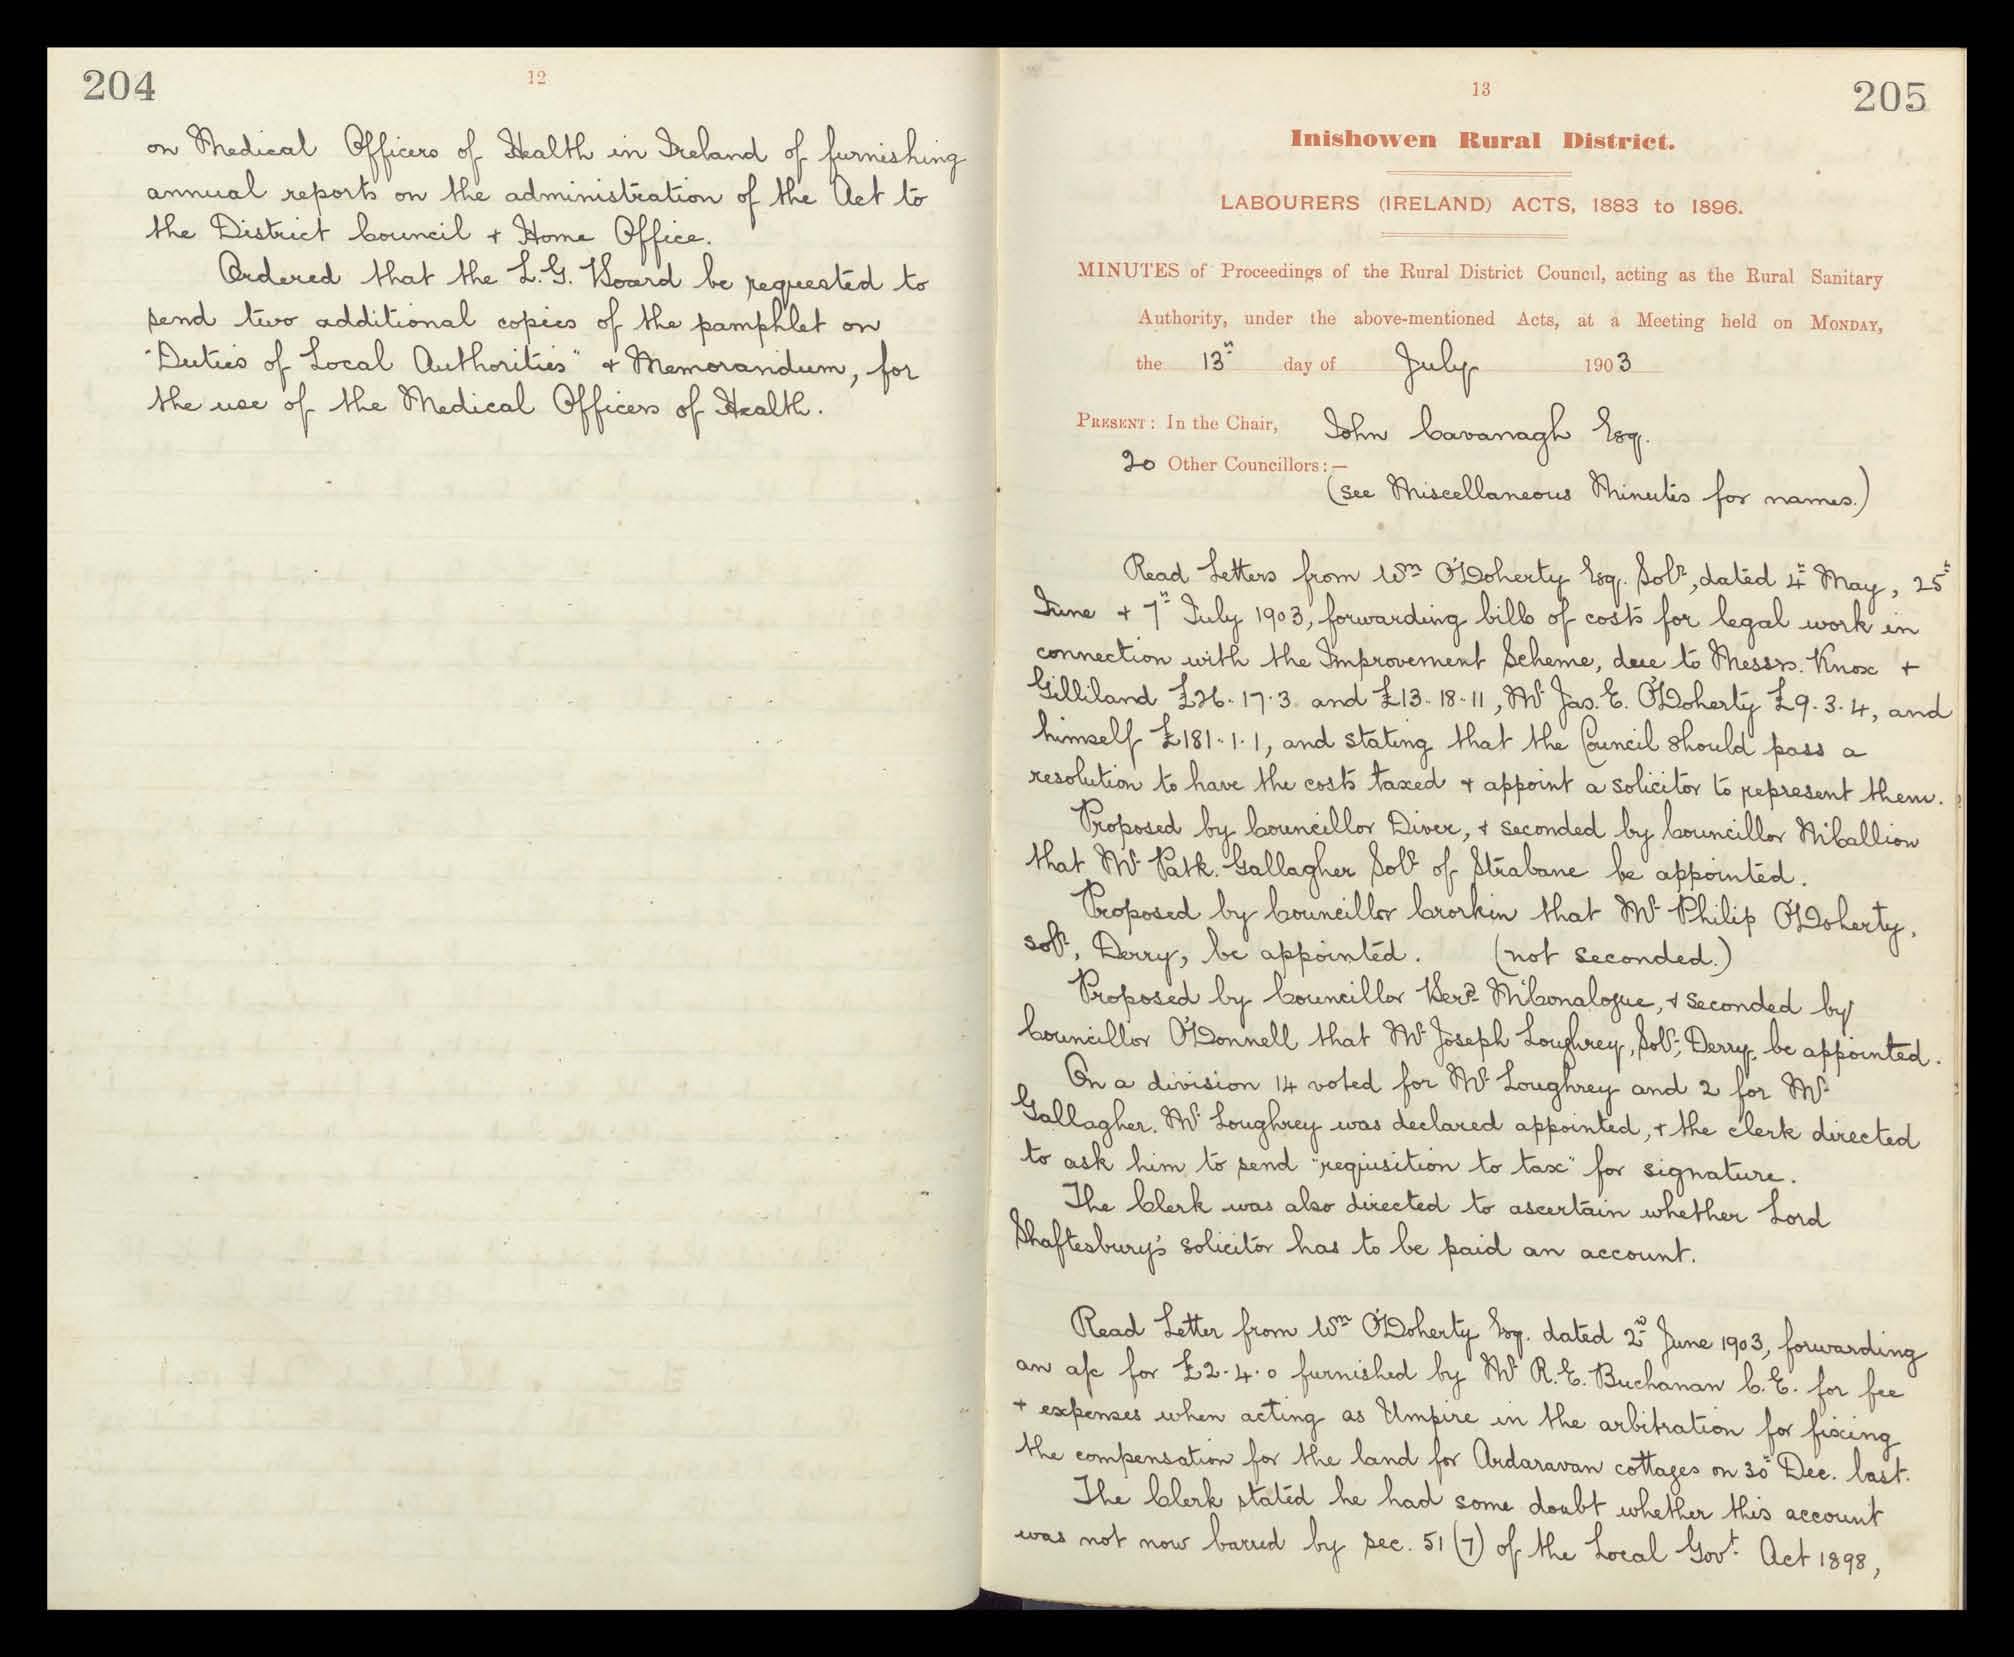 204
12
on Medical Officers of Health in Ireland of furnishing
annual reports on the administration of the Act to
the District Council + Home Office.
Ordered that the L.G. Board be requested to
send two additional copies of the pamphlet on
"Duties of Local Authorities" + Memorandum, for
the use of the Medical Officers of Health.
13
205
Inishowen Rural District.
LABOURERS (IRELAND) ACTS, 1883 to 1896.
MINUTES of Proceedings of the Rural District Council, acting as the Rural Sanitary
Authority, under the above-mentioned Acts, at a Meeting held on MONDAY,
the 13th day of July 1903
PRESENT: In the Chair, John Cavanagh Esq.
20 Other Councillors:—
(see Miscellaneous Minutes for names.)
Read Letters from Wm O'Doherty Esq. Solr, dated 4th May, 25th
June + 7th July 1903, forwarding bills of costs for legal work in
connection with the Improvement Scheme, due to Messrs. Knox +
Gilliland £26.17.3 and £13.18.11, Mr Jas. E. O'Doherty £9.3.4, and
himself £181.1.1, and stating that the Council should pass a
resolution to have the costs taxed + appoint a solicitor to represent them.
Proposed by Councillor Diver, + seconded by Councillor McCallion
that Mr Patk. Gallagher Solr of Strabane be appointed.
Proposed by Councillor Crorkin that Mr Philip O'Doherty,
solr, Derry, be appointed. (not seconded.)
Proposed by Councillor Berd McConalogue, + seconded by
Councillor O'Donnell that Mr Joseph Loughrey, Solr, Derry, be appointed.
On a division 14 voted for Mr Loughrey and 2 for Mr
Gallagher. Mr Loughrey was declared appointed, + the clerk directed
to ask him to send "requisition to tax" for signature.
The Clerk was also directed to ascertain whether Lord
Shaftesbury's solicitor has to be paid an account.
Read Letter from Wm O'Doherty Esq. dated 2nd June 1903, forwarding
an a/c for £2.4.0 furnished by Mr R.E. Buchanan C.E. for fee
+ expenses when acting as Umpire in the arbitration for fixing
the compensation for the land for Ardaravan cottages on 30th Dec. last.
The Clerk stated he had some doubt whether this account
was not now barred by sec. 51 (7) of the Local Govt. Act 1898,